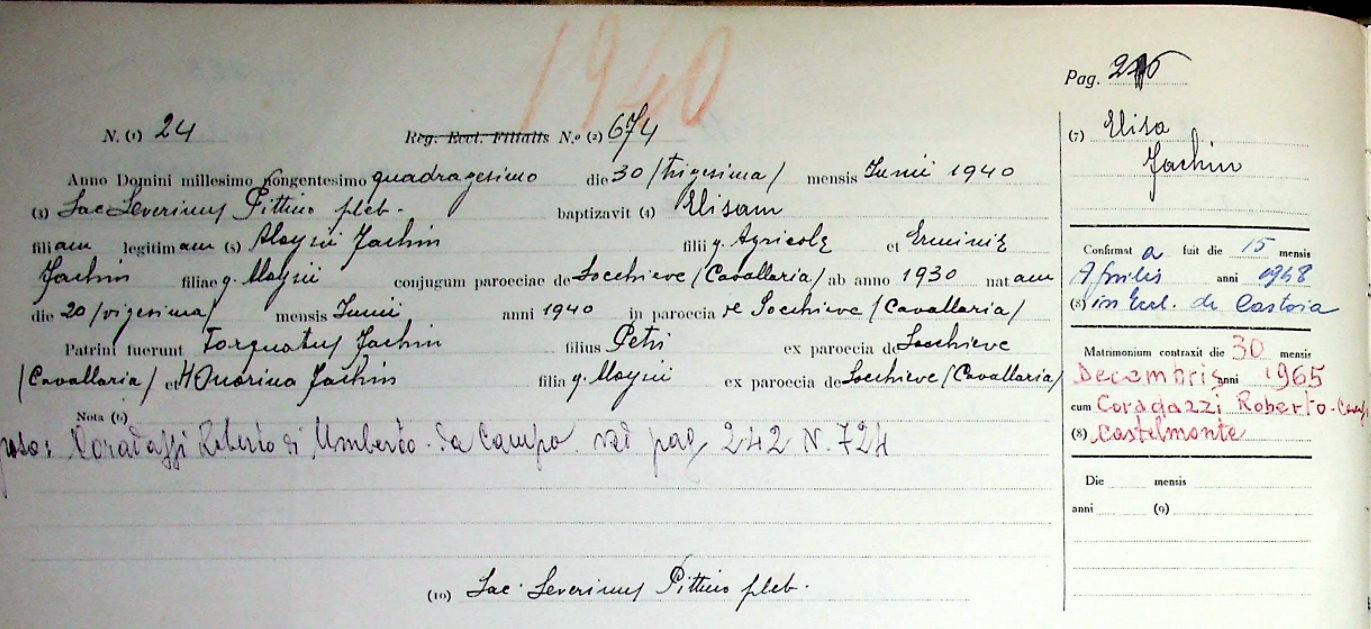 1940
Pag. 216
N. (1) 24 Reg. Eccl. Filialis N.o (2) 674
Anno Domini millesimo nongentesimo quadragesimo die 30 /trigesima/ mensis Junii 1940
(3) Sac Severinus Pittino pleb. baptizavit (4) Elisam
filiam legitimam (5) Aloysii Jachin filii q. Agricolę et Erminię
Jachin filiae q. Aloysii conjugum paroeciae de Socchieve /Cavallaria/ ab anno 1930 natam
die 20 /vigesima/ mensis Junii anni 1940 in paroecia de Socchieve /Cavallaria/
Patrini fuerunt Torquatus Jachin filius Petri ex paroecia de Socchieve
/Cavallaria/ et Onorina Jachin filia q. Aloysii ex paroecia de Socchieve /Cavallaria/
Nota (6)
Coradazzi Roberto di Umberto da Campo ved pag 242 N. 724
(10) Sac Severinus Pittino pleb.
(7) Elisa
Jachin
Confirmat a fuit die 15 mensis
Aprilis anni 1948
(8) in Eccl. de Castoia
Matrimonium contraxit die 30 mensis
Decembris anni 1965
cum Coradazzi Roberto
(8) Castelmonte
Die mensis
anni (9)